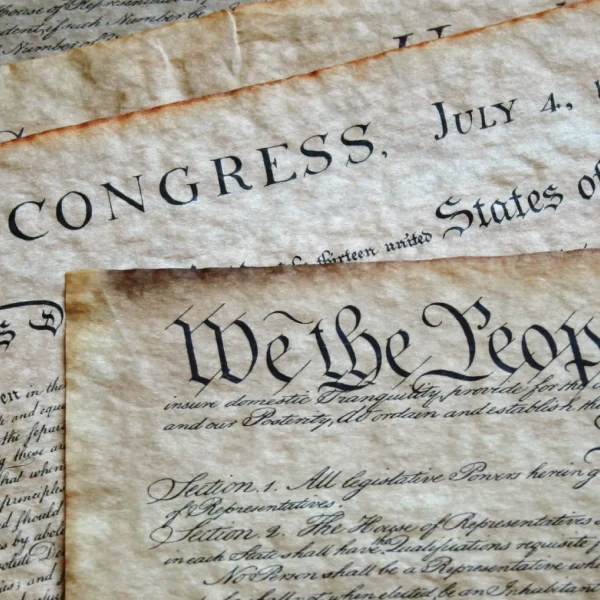 House of Representatives
Number of
CONGRESS, JULY 4,
thirteen united States of
We the Peop
insure domestic Tranquility, provide for the
and our Posterity, do ordain and establish th
Section. 1. All legislative Powers herein g
of Representatives.
Section. 2. The House of Representatives
in each State shall have the Qualifications requisite f
No Person shall be a Representative who
shall not, when elected, be an Inhabitant
in the
and equa
the separ
these ar
that when
principles
should
by abol
and